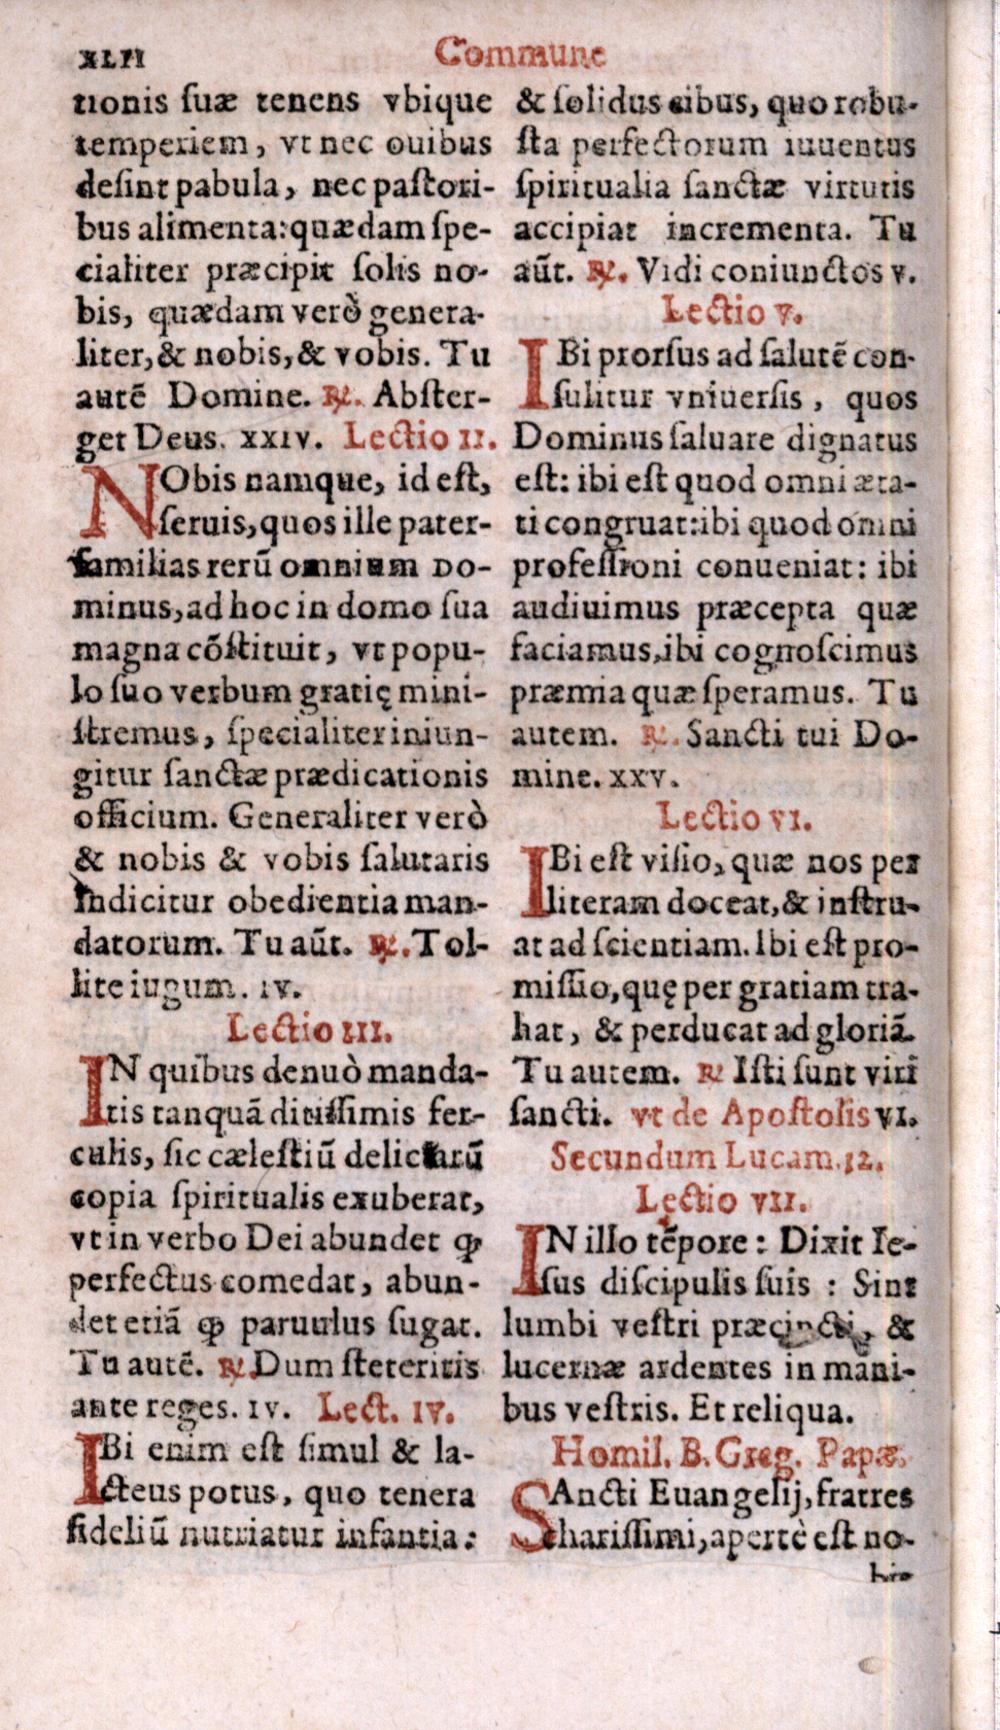 XLII
Commune
tionis ſuæ tenens vbique
temperiem, vt nec ouibus
deſint pabula, nec paſtori-
bus alimenta: quædam ſpe-
cialiter præcipit ſolis no-
bis, quædam verò genera-
liter, & nobis, & vobis. Tu
autē Domine. ℟. Abſter-
get Deus. XXIV. Lectio II.
NObis namque, id eſt,
ſeruis, quos ille pater-
familias rerū omnium Do-
minus, ad hoc in domo ſua
magna cōſtituit, vt popu-
lo ſuo verbum gratię mini-
ſtremus, ſpecialiter iniun-
gitur ſanctæ prædicationis
officium. Generaliter verò
& nobis & vobis ſalutaris
indicitur obedientia man-
datorum. Tu aūt. ℟. Tol-
lite iugum. IV.
Lectio III.
IN quibus denuò manda-
tis tanquā ditiſſimis fer-
culis, ſic cæleſtiū deliciarū
copia ſpiritualis exuberat,
vt in verbo Dei abundet ꝙ
perfectus comedat, abun-
det etiā ꝙ paruulus ſugat.
Tu autē. ℟. Dum ſteteritis
ante reges. IV. Lect. IV.
IBi enim eſt ſimul & la-
cteus potus, quo tenera
fideliū nutriatur infantia:
& ſolidus cibus, quo robu-
ſta perfectorum iuuentus
ſpiritualia ſanctæ virtutis
accipiat incrementa. Tu
aūt. ℟. Vidi coniunctos V.
Lectio V.
IBi prorſus ad ſalutē con-
ſulitur vniuerſis, quos
Dominus ſaluare dignatus
eſt: ibi eſt quod omni æta-
ti congruat: ibi quod omni
profeſſioni conueniat: ibi
audiuimus præcepta quæ
faciamus, ibi cognoſcimus
præmia quæ ſperamus. Tu
autem. ℟. Sancti tui Do-
mine. XXV.
Lectio VI.
IBi eſt viſio, quæ nos per
literam doceat, & inſtru-
at ad ſcientiam. Ibi eſt pro-
miſſio, quę per gratiam tra-
hat, & perducat ad gloriā.
Tu autem. ℟ Iſti ſunt viri
ſancti. vt de Apoſtolis VI.
Secundum Lucam. 12.
Lectio VII.
IN illo tēpore: Dixit Ie-
ſus diſcipulis ſuis : Sint
lumbi veſtri præcincti, &
lucernæ ardentes in mani-
bus veſtris. Et reliqua.
Homil. B. Greg. Papæ.
SAncti Euangelij, fratres
chariſſimi, apertè eſt no-
bis